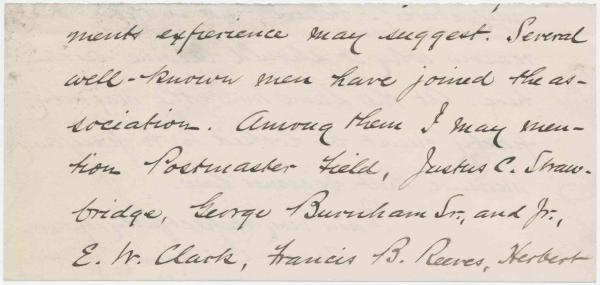 ments experience may suggest. Several
well-known men have joined the as-
sociation. Among them I may men-
tion Postmaster Field, Justus C. Straw-
bridge, George Burnham Sr., and Jr.,
E. W. Clark, Francis B. Reeves, Herbert